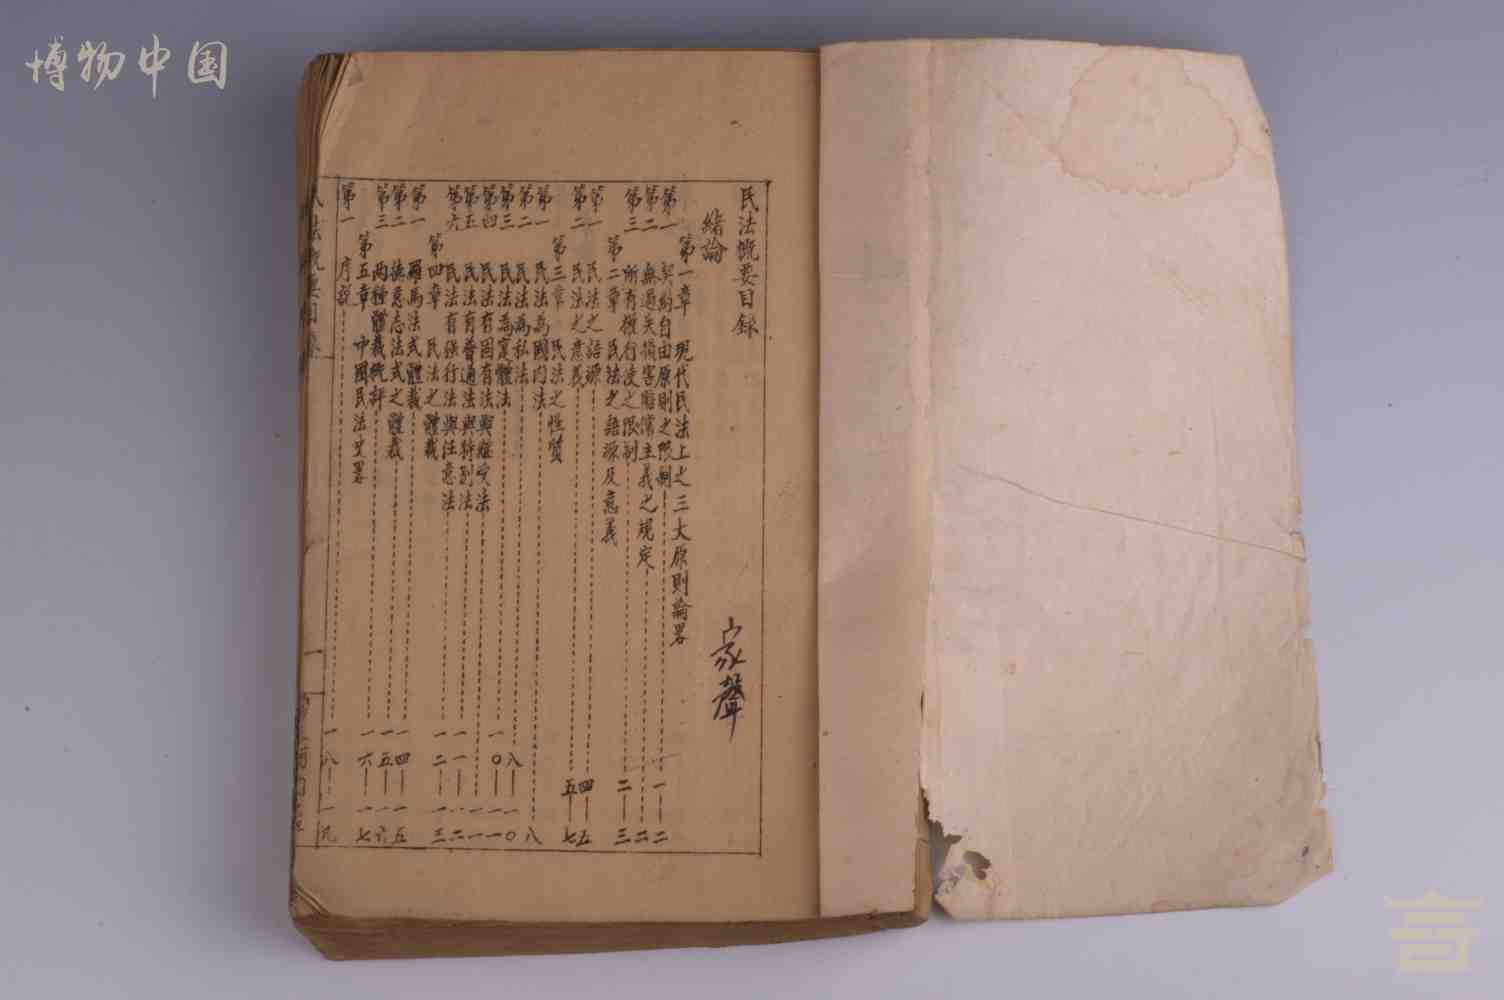 博物中国
民法概要目錄
緒論
第一章 現代民法上之三大原則論畧
第一 契約自由原則之限制 一——二
第二 無過失損害賠償主義之規定 二
第三 所有權行使之限制 二——三
第二章 民法之語源及意義
第一 民法之語源 四——五
第二 民法之意義 五——七
第三章 民法之性質
第一 民法為國內法 八
第二 民法為私法 八——一〇
第三 民法為實體法 一〇——一一
第四 民法有固有法與繼受法 一一
第五 民法有普通法與特別法 一一——一二
第六 民法有强行法與任意法 一二——一三
第四章 民法之體裁
第一 羅馬法式體裁 一四——一五
第二 德意志法式之體裁 一五——一六
第三 兩種體裁批評 一六——一七
第五章 中國民法史畧
第一 序説 一八——一九
民法概要目錄
一
家聲